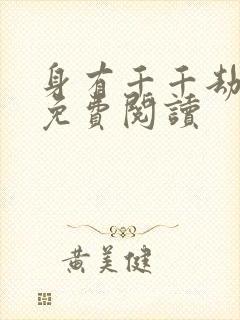 身有千千劫
免費閱讀
黄美健